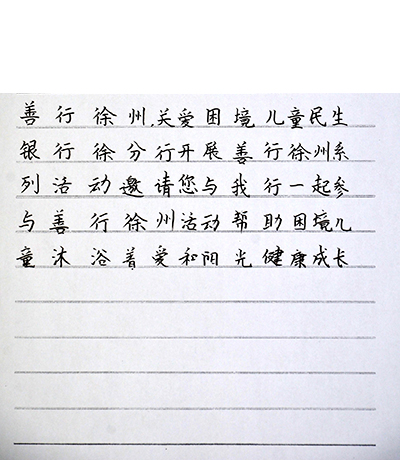 善行徐州,关爱困境儿童民生
银行徐分行开展善行徐州系
列活动邀请您与我行一起参
与善行徐州活动帮助困境儿
童沐浴善爱和阳光健康成长